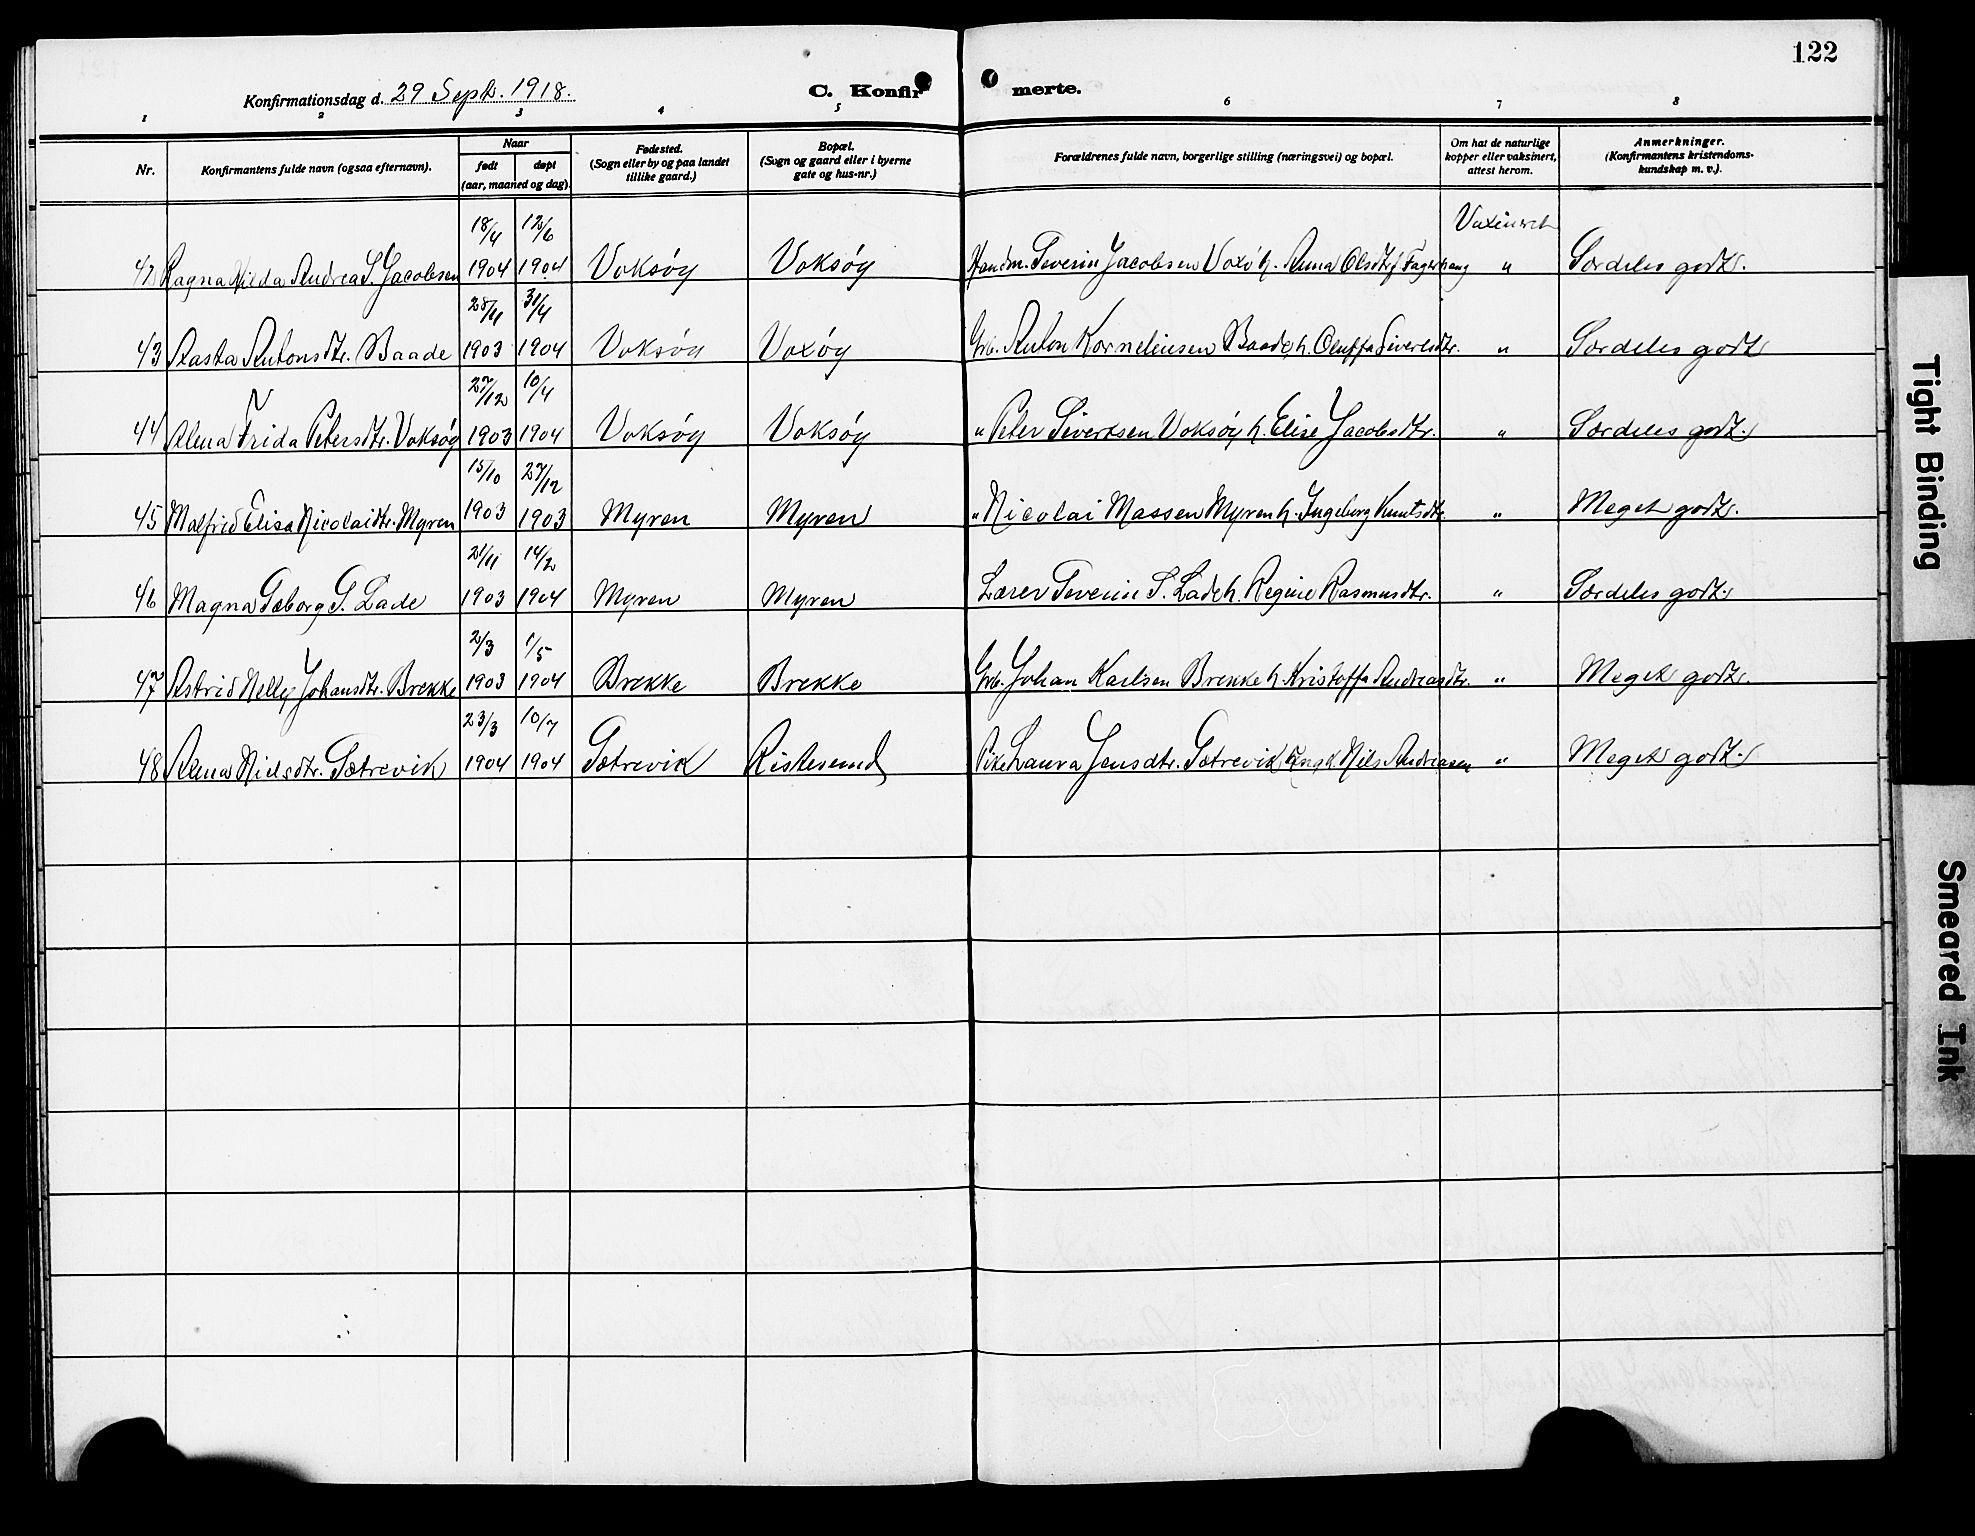 122
Konfirmationsdag d. 29 Sept. 1918.
C. Konfir merte.
1 2 3 4 5 6 7 8
Nr. Konfirmantens fulde navn (ogsaa efternavn). Naar født døpt (aar, maaned og dag). Fødested. (Sogn eller by og paa landet tillike gaard.) Bopæl. (Sogn og gaard eller i byerne gate og hus-nr.) Forældrenes fulde navn, borgerlige stilling (næringsvei) og bopæl. Om hat de naturlige kopper eller vaksinert, attest herom. Anmerkninger. (Konfirmantens kristendoms-kundskap m. v.).
18/4 12/6
42 Ragna Hilda Andrea S. Jacobsen 1904 1904 Voksøy Voksøy Handm. Severin Jacobsen Voxø h. Anna Olsdtr. f. Fagerhaug " Særdeles godt.
28/11 31/4
43 Aasta Antonsdtr. Baade 1903 1904 Voksøy Voxøy Grb. Anton Korneliusen Baade h. Oluffa Sivertsdtr. " Særdeles godt
27/12 10/4
44 Alma Frida Petersdtr. Voksøy 1903 1904 Voksøy Voksøy " Peter Sivertsen Voksøy h. Elise Jacobsdtr. " Særdeles godt.
15/10 27/12
45 Malfrid Elisa Nicolaidtr. Myren 1903 1903 Myren Myren " Nicolai Massen Myren h. Ingeborg Knutsdtr. " Meget godt.
21/11 14/2
46 Magna Sæborg S. Lade 1903 1904 Myren Myren Lærer Severin S. Lade h. Regine Rasmusdtr. " Særdeles godt.
2/3 1/5
47 Astrid Nelly Johansdtr. Brekke 1903 1904 Brekke Brekke Grb. Johan Karlsen Brekke h. Kristoffa Andreasdtr. " Meget godt.
23/3 10/7
48 Alma Nielsdtr. Sætrevik 1904 1904 Sætrevik Ristesund Pike Laura Jensdtr. Sætrevik Ungk. Nils Andreasen " Meget godt.
Tight Binding
Smeared Ink